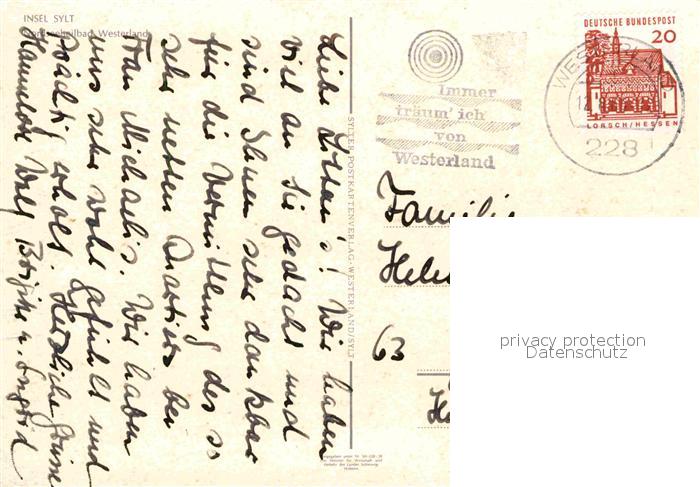 INSEL SYLT
Nordseeheilbad Westerland
Liebe! Wir haben
viel an Sie gedacht und
sind Ihnen sehr dankbar
für die Vermittlung des so
sehr netten Quartiers bei
Frau Michaelis. Wir haben
uns sehr wohl gefühlt und
prächtig erholt. Herzliche Grüsse
Wolf Brigitte u. Ingrid
SYLTER-POSTKARTENVERLAG·WESTERLAND/SYLT
Immer
träum' ich
von
Westerland
DEUTSCHE BUNDESPOST
20
LORSCH/HESSEN
228
Familie
63
privacy protection
Datenschutz